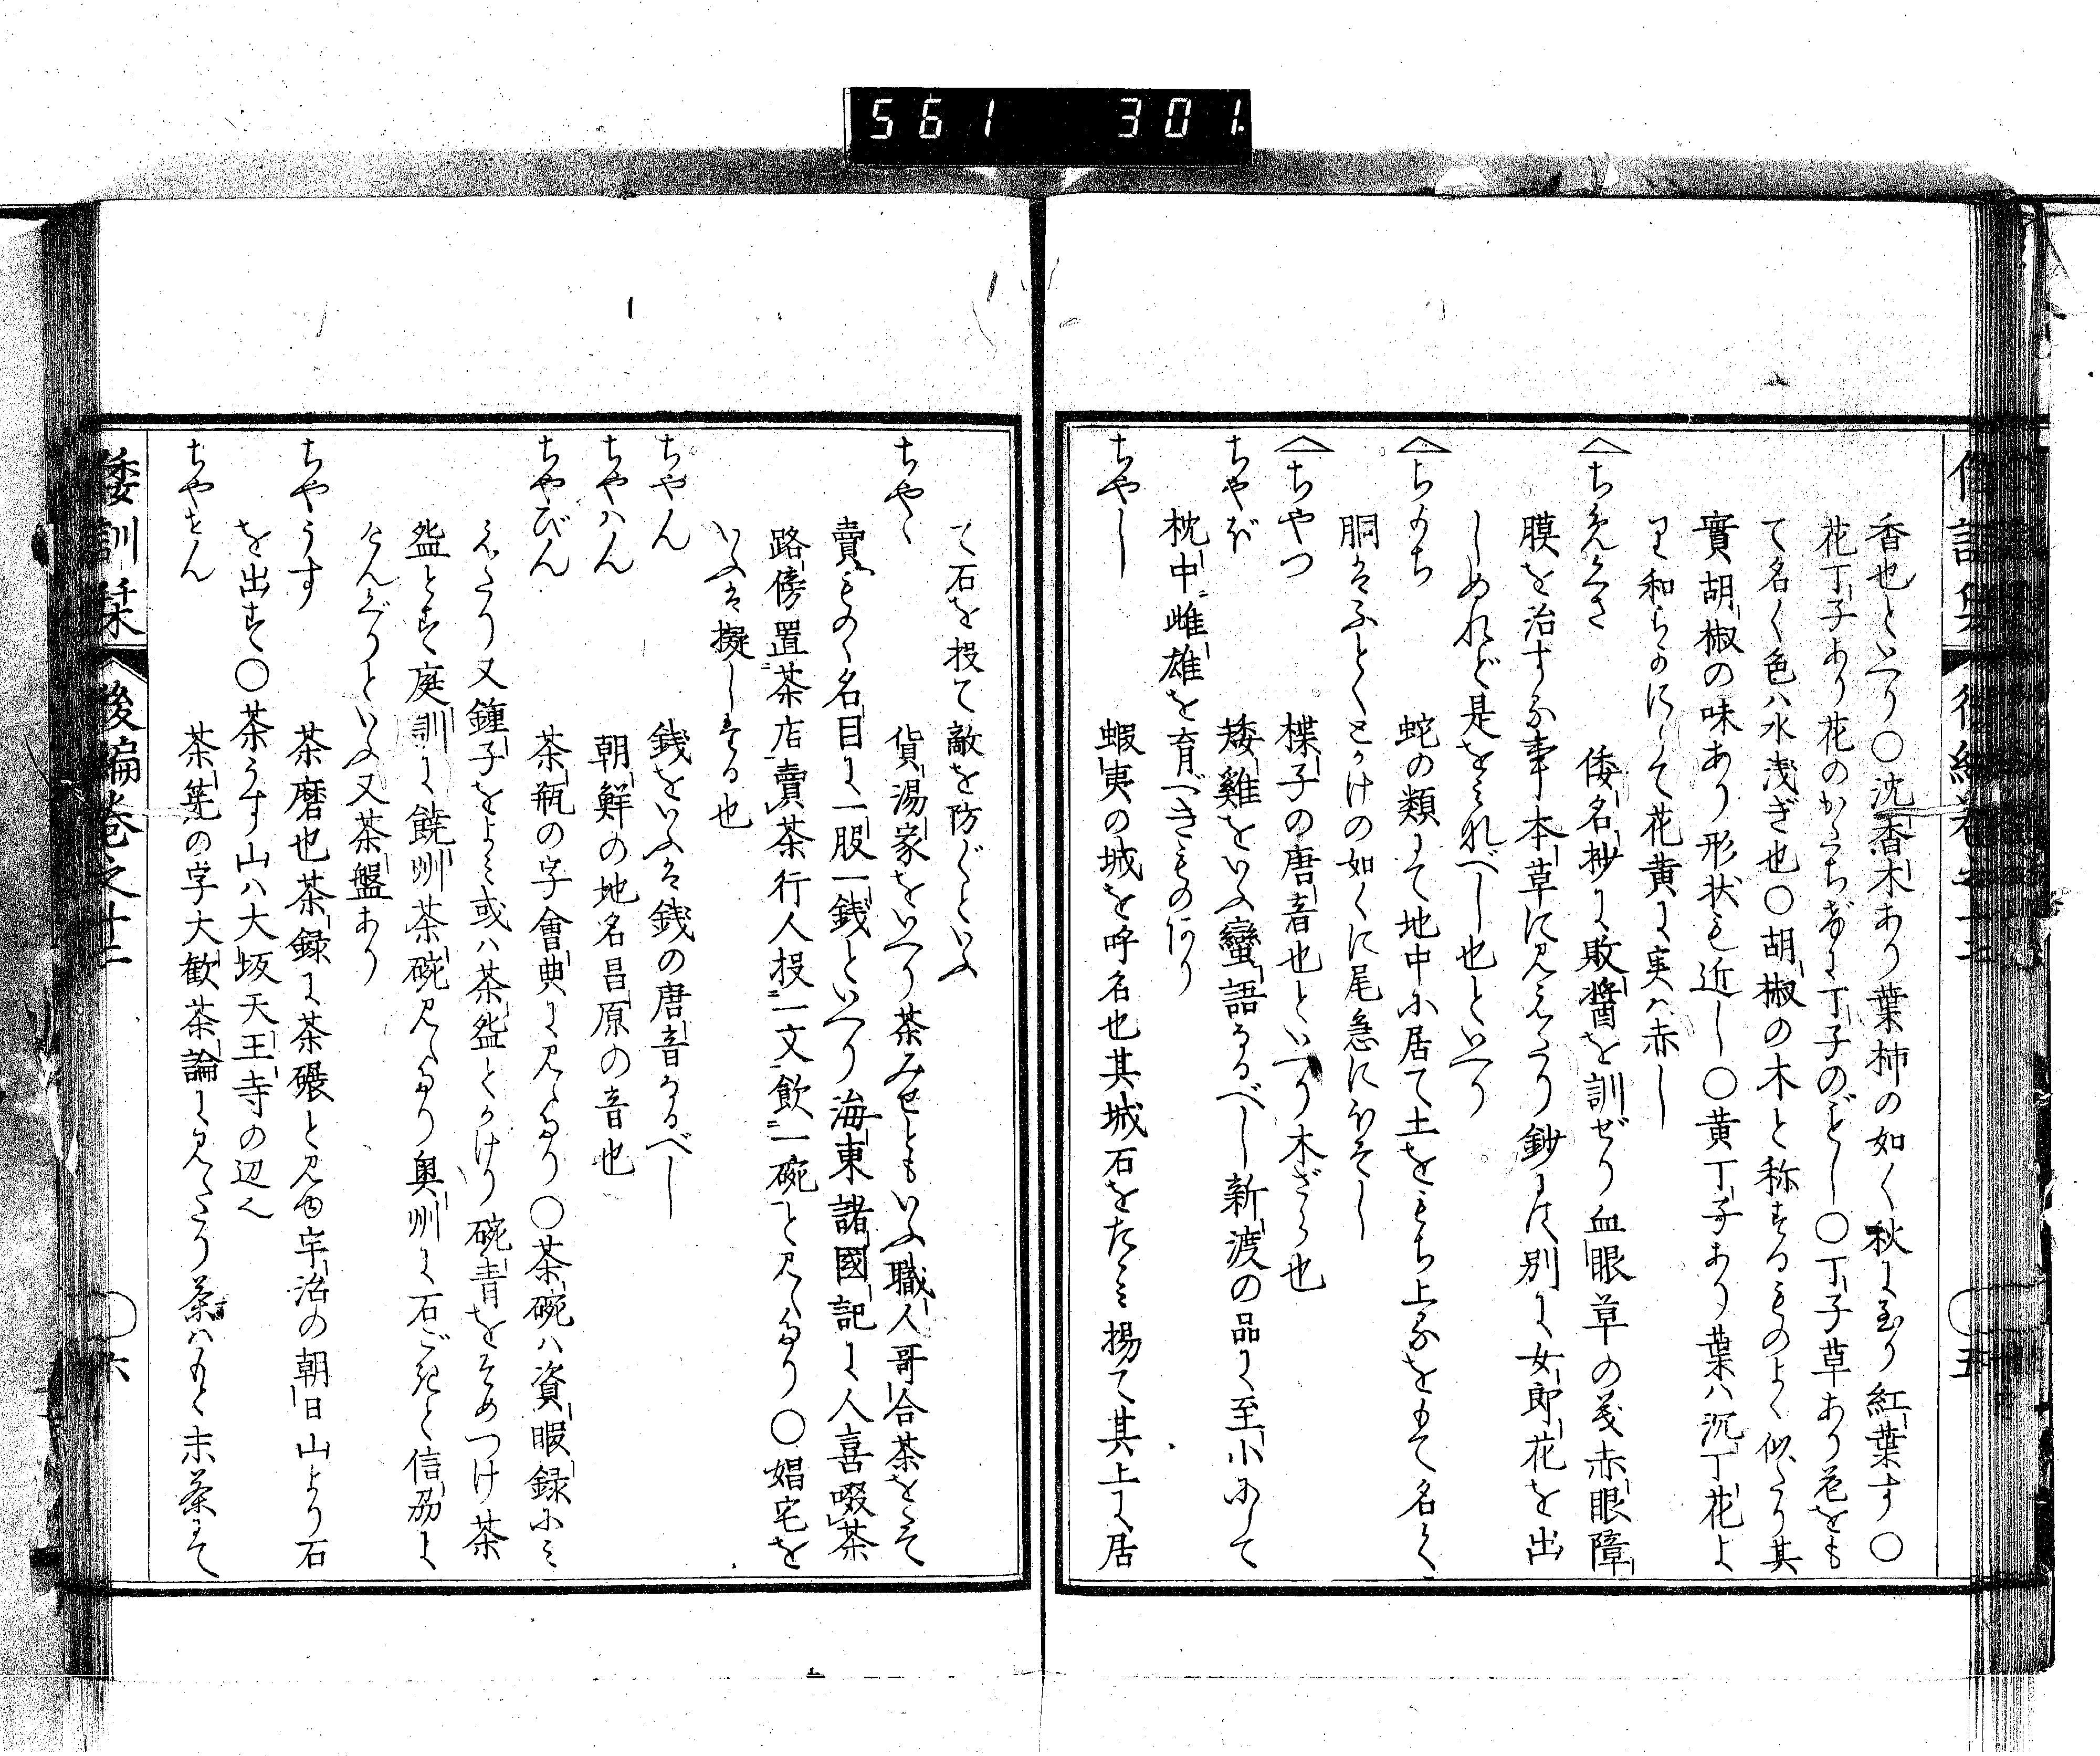 561 301
香也といへり〇沈香木あり葉柿の如く秋に至り紅葉す〇
花丁子あり花のかたち猶に丁子のごとし〇丁子草あり花をも
て名く色ハ水浅ぎ也〇胡椒の木と称するものよく似たり其
實胡椒の味あり形状も近し〇黄丁子あり葉ハ沉丁花よ
り和らかにして花黄に実は赤し
ちめくさ 倭名抄に敗醤を訓ぜり血眼草の義赤眼障
膜を治する事本草に見えたり鈔には別に女郎花を出
しぬれど是をみれべし也といへり
ちもち 蛇の類にて地中に居て土をもち上るをもて名く
胴はふとくとかけの如くに尾急にほそし
ちやつ 楪子の唐音也といへり木ざら也
ちやぼ 矮雞をいふ蠻語なるべし新渡の品に至小にして
枕中雌雄を育べきものあり
ちやし 蝦夷の城を呼名也其城石をたゝみ揚て其上に居
て石を投て敵を防ぐといふ
ちやゝ 貨湯家をいへり茶みせともいふ職人哥合茶をたて
賣ものゝ名目に一服一銭といへり海東諸國記に人喜啜茶
路傍置茶店賣茶行人投一文飲一碗と見えたり〇娼宅を
いふは擬しする也
ちやん 銭をいふは銭の唐音なるべし
ちやハん 朝鮮の地名昌原の音也
ちやびん 茶瓶の字會典に見えたり〇茶碗ハ資暇録にみ
えたり又鍾子をよミ或ハ茶盌とかけり碗青をそめつけ茶
盌とす庭訓に饒州茶碗見えたり奥州に石ごきと信刕に
けんぐりといふ又茶盤あり
ちやうす 茶磨也茶録に茶碾と見ゆ宇治の朝日山より石
を出す〇茶うす山ハ大坂天王寺の辺也
ちやせん 茶筅の字大歓茶論に見えたり茶はもと末茶にて
倭訓栞 後編巻之十二 〇五
倭訓栞 後編巻之十二 〇六